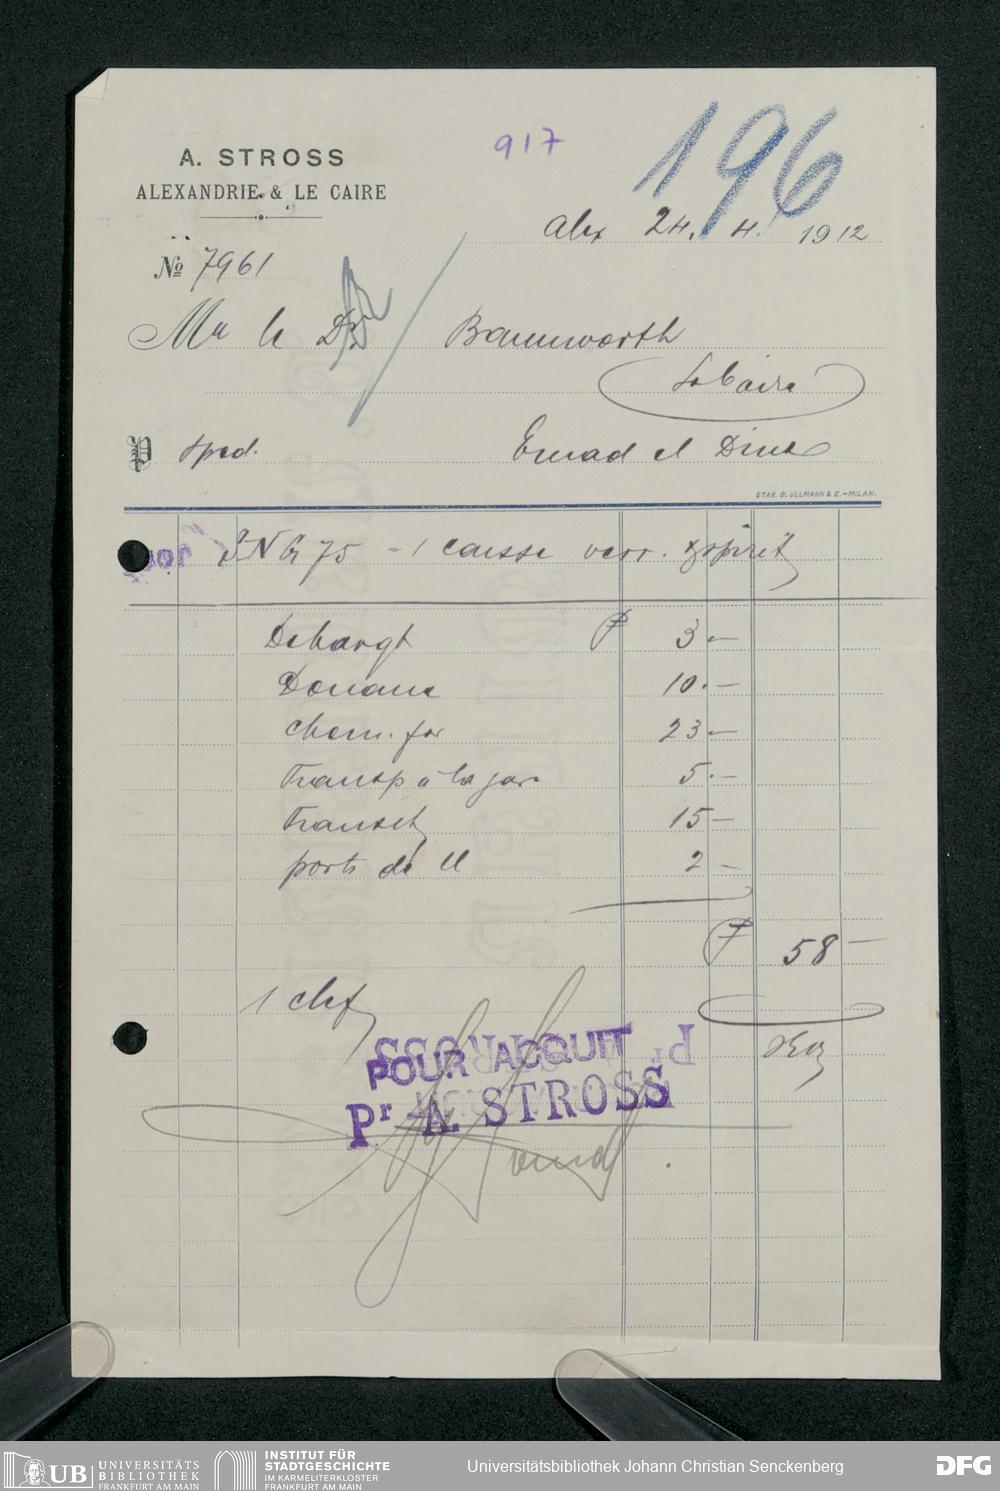 917
196
A. STROSS
ALEXANDRIE & LE CAIRE
Alex 24. 4. 1912
No 7961
Mr le Dr Bannwarth
Le Caire
P sped. Emad el Dine
STAB. G. ULLMANN & C. - MILAN.
J N G 75 - 1 caisse verr.
Debarqt P 3.—
Douane 10.—
chem. fer 23.—
Transp a la gare 5.—
Transit 15—
ports de 2—
P 58—
1 clef
POUR ACQUIT
Pr A. STROSS
UB UNIVERSITÄTS
BIBLIOTHEK
FRANKFURT AM MAIN
INSTITUT FÜR
STADTGESCHICHTE
IM KARMELITERKLOSTER
FRANKFURT AM MAIN
Universitätsbibliothek Johann Christian Senckenberg
DFG